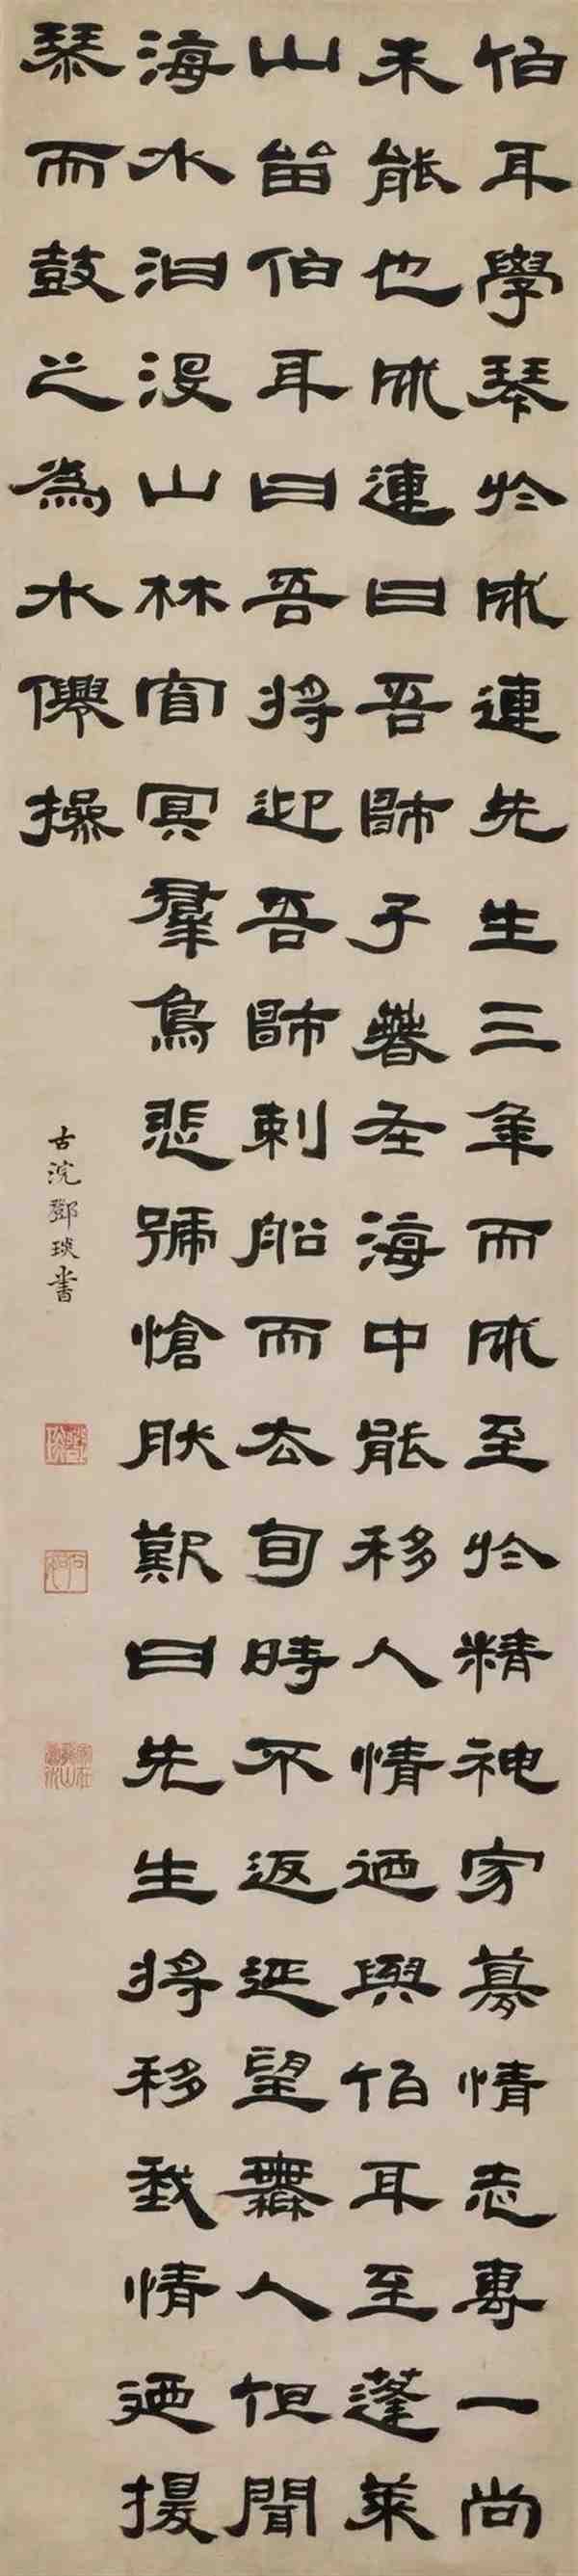 伯牙學琴於成連先生三年而成至於精神寂寞情志專一尚
未能也成連曰吾師子春在海中能移人情迺與伯牙至蓬萊
山留伯牙曰吾將迎吾師刺船而去旬時不返延望無人但聞
海水汩沒山林窅冥羣鳥悲號愴然歎曰先生將移我情迺援
琴而鼓之為水僊操
古浣鄧琰書
鄧琰
石如